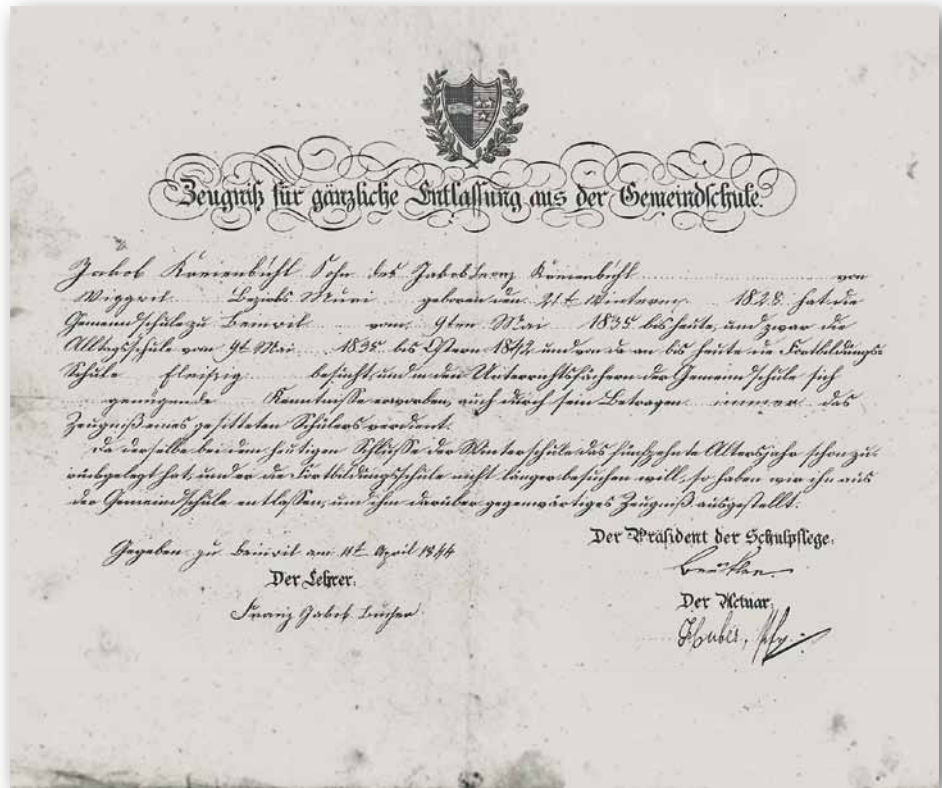 Zeugniß für gänzliche Entlassung aus der Gemeindschule.
Jakob Kreienbühl Sohn des Jakob Lonz Kreienbühl von
Wiggwil Bezirks Muri geboren den 21t. Winterm. 1828. hat die
Gemeindschule zu Beinwil vom 9ten Mai 1835 bis heute, und zwar die
Alltagsschule vom 9t. Mai 1835 bis Ostern 1842 und von da an bis heute die Fortbildungs-
Schule fleißig besucht, und in den Unterrichtsfächern der Gemeindschule sich
genügende Kenntnisse erworben, auch durch sein Betragen immer das
Zeugniß eines gesitteten Schülers verdient.
Da derselbe bei dem heutigen Schlusse der Winterschule das fünfzehnte Altersjahr schon zu-
rückgelegt hat, und er die Fortbildungsschule nicht länger besuchen will, so haben wir ihn aus
der Gemeindschule entlassen, und ihm darüber gegenwärtiges Zeugniß ausgestellt.
Gegeben zu Beinwil am 11t. April 1844
Der Präsident der Schulpflege:
Der Lehrer:
Franz Jakob Bucher.
Der Actuar:
Huber,